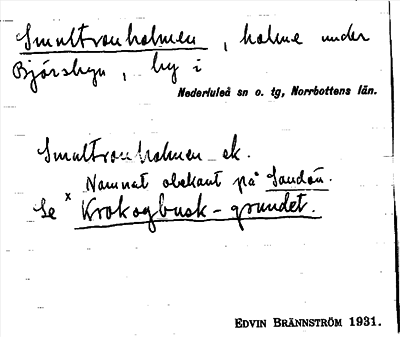 Smultronholmen, holme under
Björsbyn, by i
Nederluleå sn o. tg, Norrbottens län.
Smultronholmen ek.
Namnet obekant på Sandön.
Se x Krokogbusk-grundet.
EDVIN BRÄNNSTRÖM 1931.